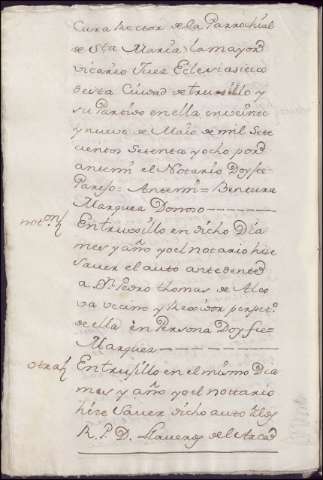 Cura Rector de la Parrochial
de Sta María la mayor
vicario Juez Ecleviasticо
de esta Ciudad de trusillo y
su Partido en ella en veinte
y nueve de Maio de mil Sete
cientos Setenta y ocho por
antemi el Notario Doy fe
Paresio= Antemi= Bentura
Marquez Donoso
notn
En trusillo en dicho Dia
mes y año yo el notario hize
Saver el auto antecedente
a Dn Pedro thomas de
vecino y
de ella en Persona Doy fee=
Marquez
otra
En trusillo en el mismo Dia
mes y año yo el nottario
hize Saver dicho auto
R. P. D. de el